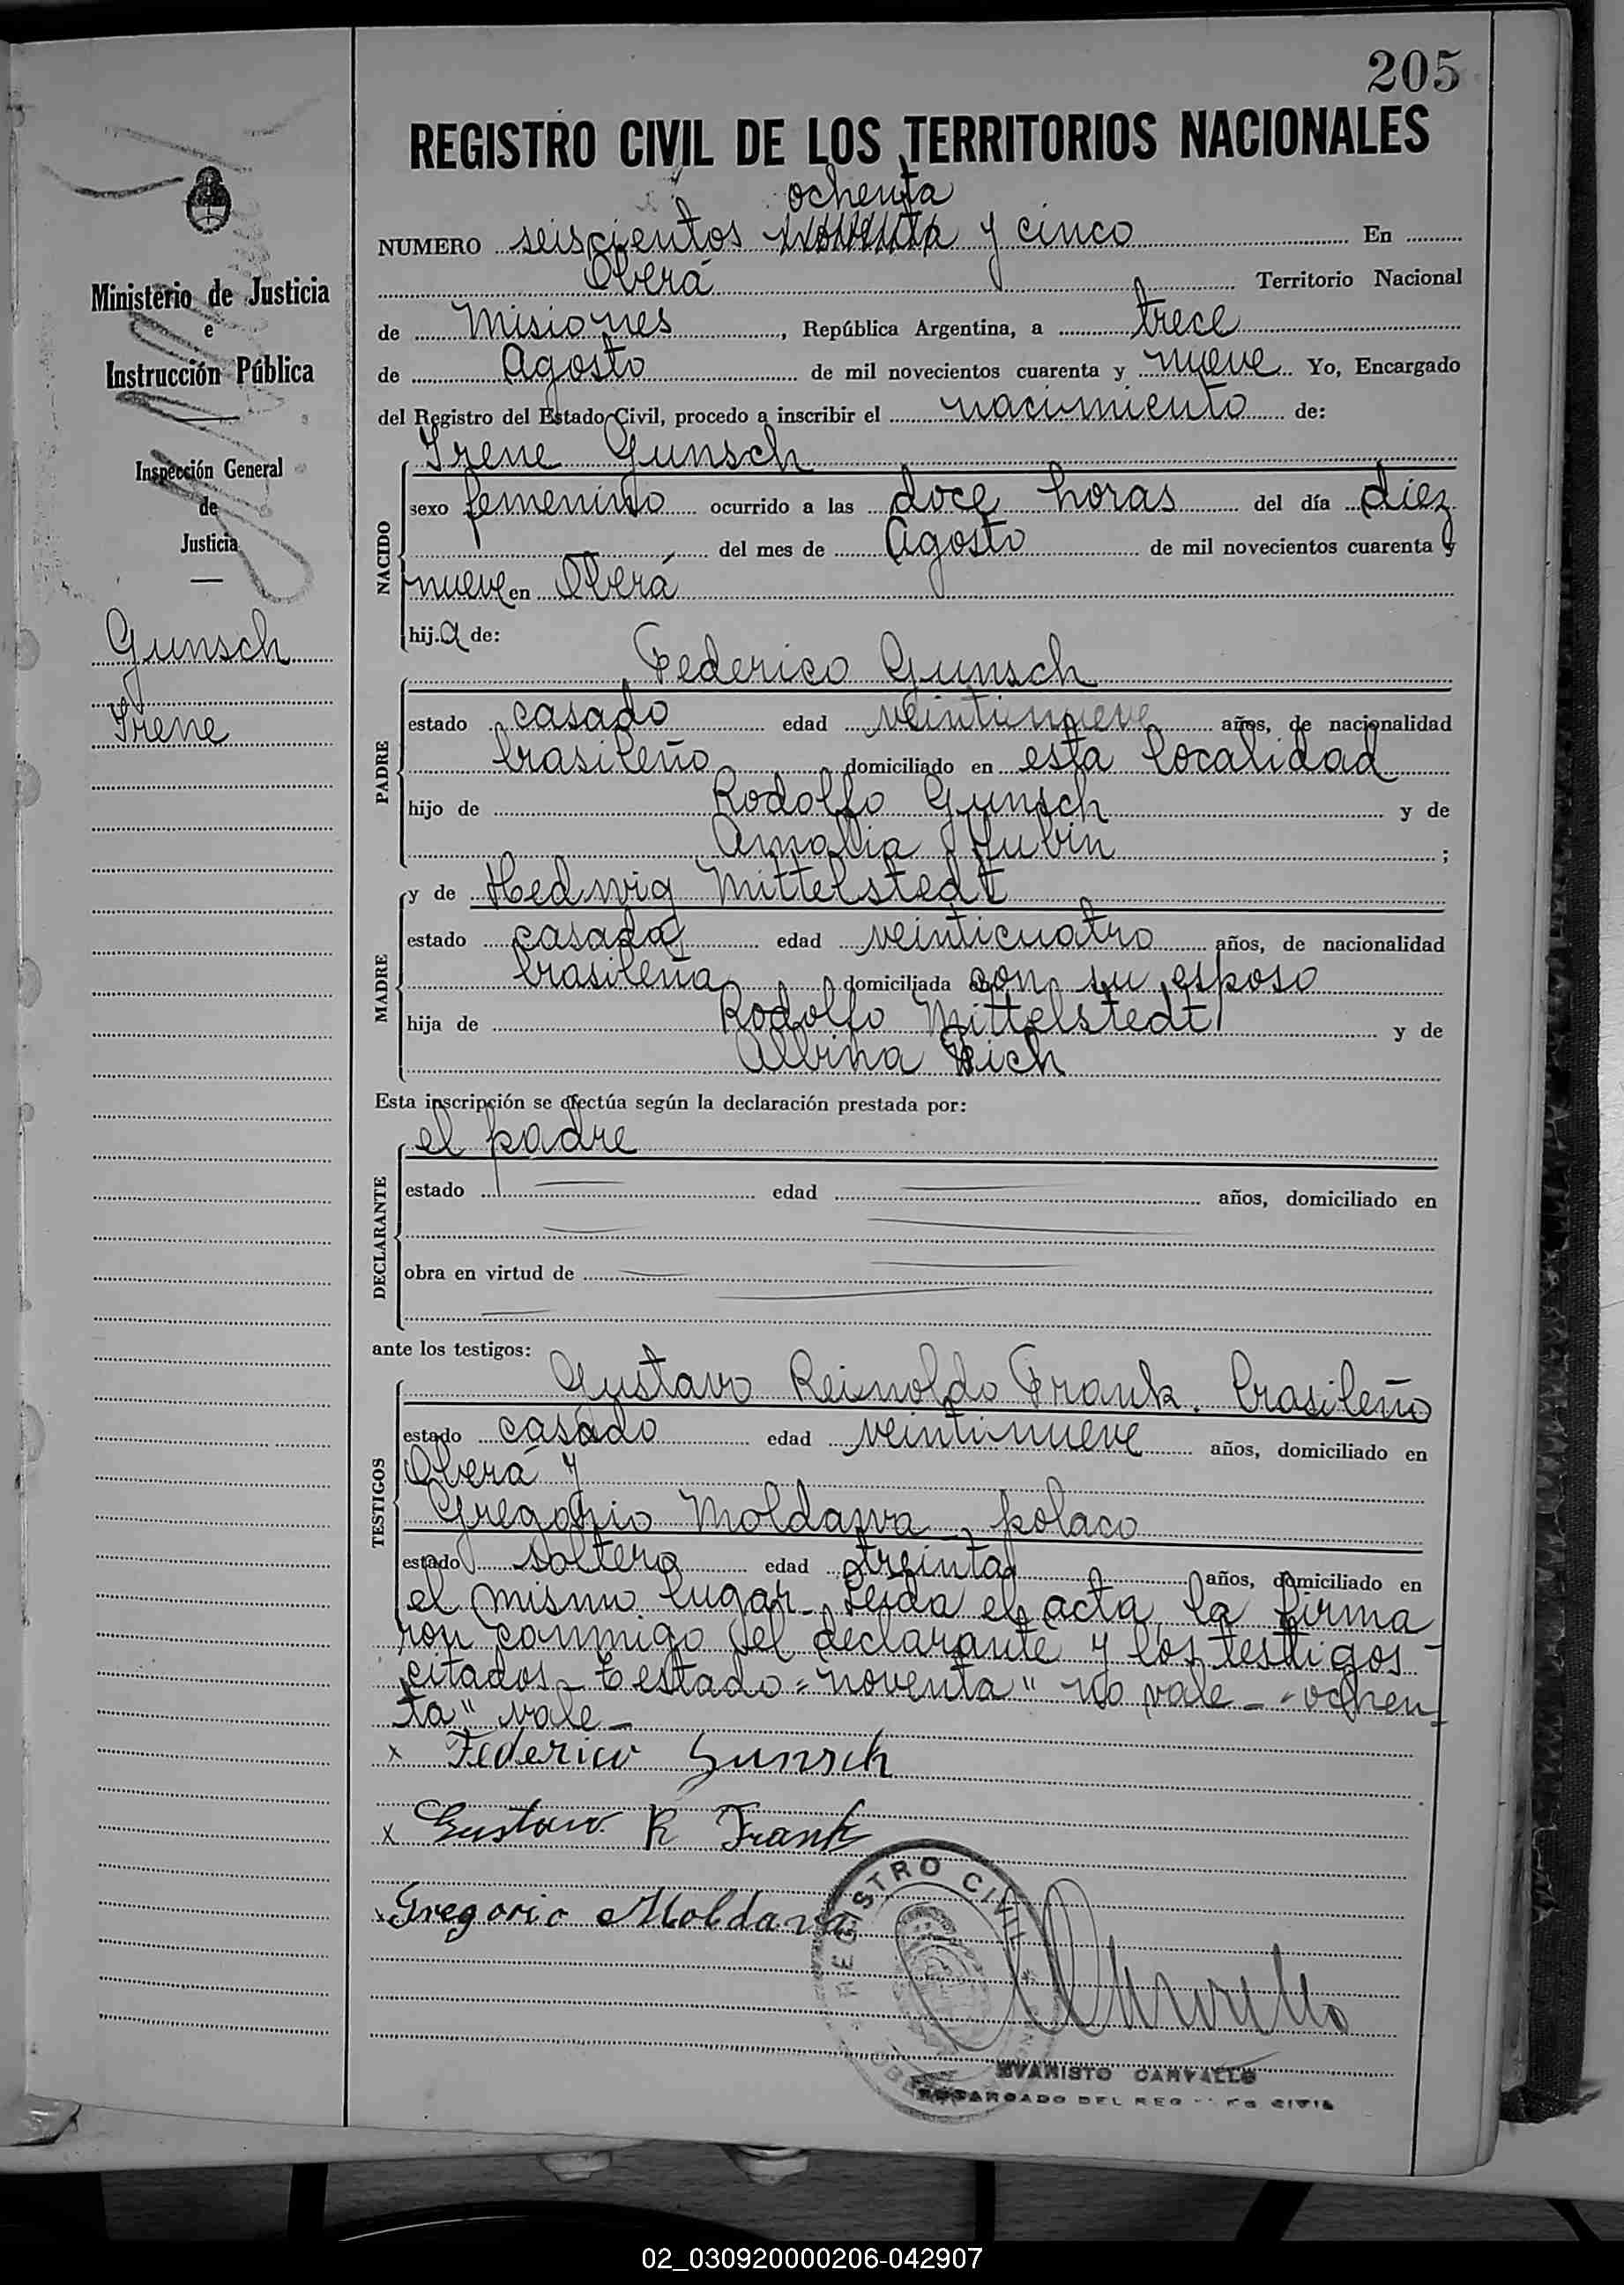 205
REGISTRO CIVIL DE LOS TERRITORIOS NACIONALES
ochenta
NUMERO seiscientos noventa y cinco En
Oberá Territorio Nacional
de Misiones, República Argentina, a trece
de Agosto de mil novecientos cuarenta y nueve Yo, Encargado
del Registro del Estado Civil, procedo a inscribir el nacimiento de:
Ministerio de Justicia
e
Instrucción Pública
Inspección General
de
Justicia
Gunsch
Irene
NACIDO
Irene Gunsch
sexo femenino ocurrido a las doce horas del día diez
del mes de Agosto de mil novecientos cuarenta y
nueve en Oberá
hij.a de:
PADRE
Federico Gunsch
estado casado edad veintinueve años, de nacionalidad
brasileño domiciliado en esta localidad
hijo de Rodolfo Gunsch y de
Amalia Jubin ;
MADRE
y de Hedwig Mittelstedt
estado casada edad veinticuatro años, de nacionalidad
brasileña domiciliada con su esposo
hija de Rodolfo Mittelstedt y de
Albina
Esta inscripción se efectúa según la declaración prestada por:
DECLARANTE
el padre
estado edad años, domiciliado en
obra en virtud de
ante los testigos:
TESTIGOS
Gustavo Reinoldo Frank. brasileño
estado casado edad veintinueve años, domiciliado en
Oberá y
Gregorio Moldawa, polaco
estado soltero edad treinta años, domiciliado en
el mismo lugar. Leida el acta la firma
ron conmigo el declarante y los testigos
citados- Testado="noventa" no vale - "ochen
ta" vale-
x Federico Gunsch
x Gustavo R Frank
x Gregorio Moldawa
REGISTRO CIVIL
EVARISTO CARVALLO
ENCARGADO DEL REGISTRO CIVIL
02_030920000206-042907